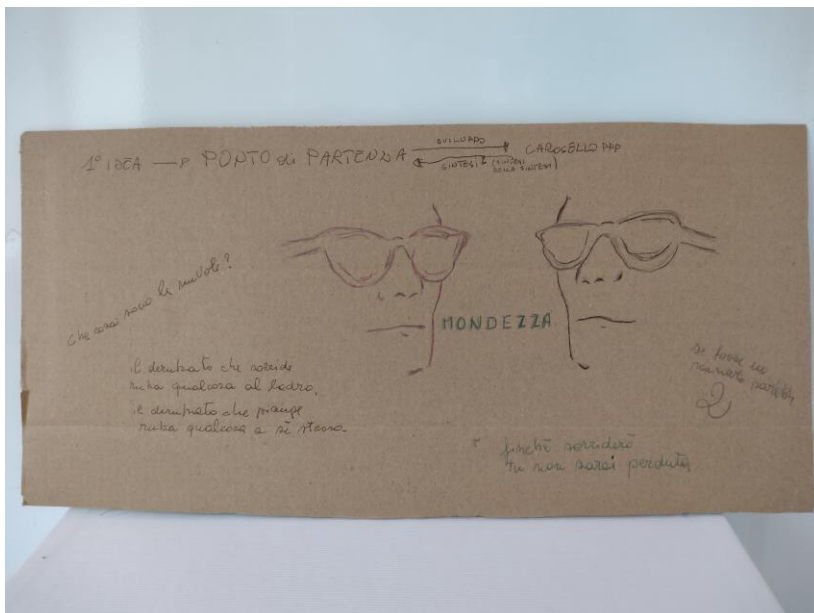 1° IDEA → PUNTO di PARTENZA
SVILUPPO
CAROSELLO PPP
SINTESI (SINTESI
DELLA SINTESI)
che cosa sono le nuvole?
MONDEZZA
il derubato che sorride
ruba qualcosa al ladro,
il derubato che piange
ruba qualcosa a sè stesso.
se fosse un
numero sarebbe
2
finchè sorriderò
tu non sarai perduta